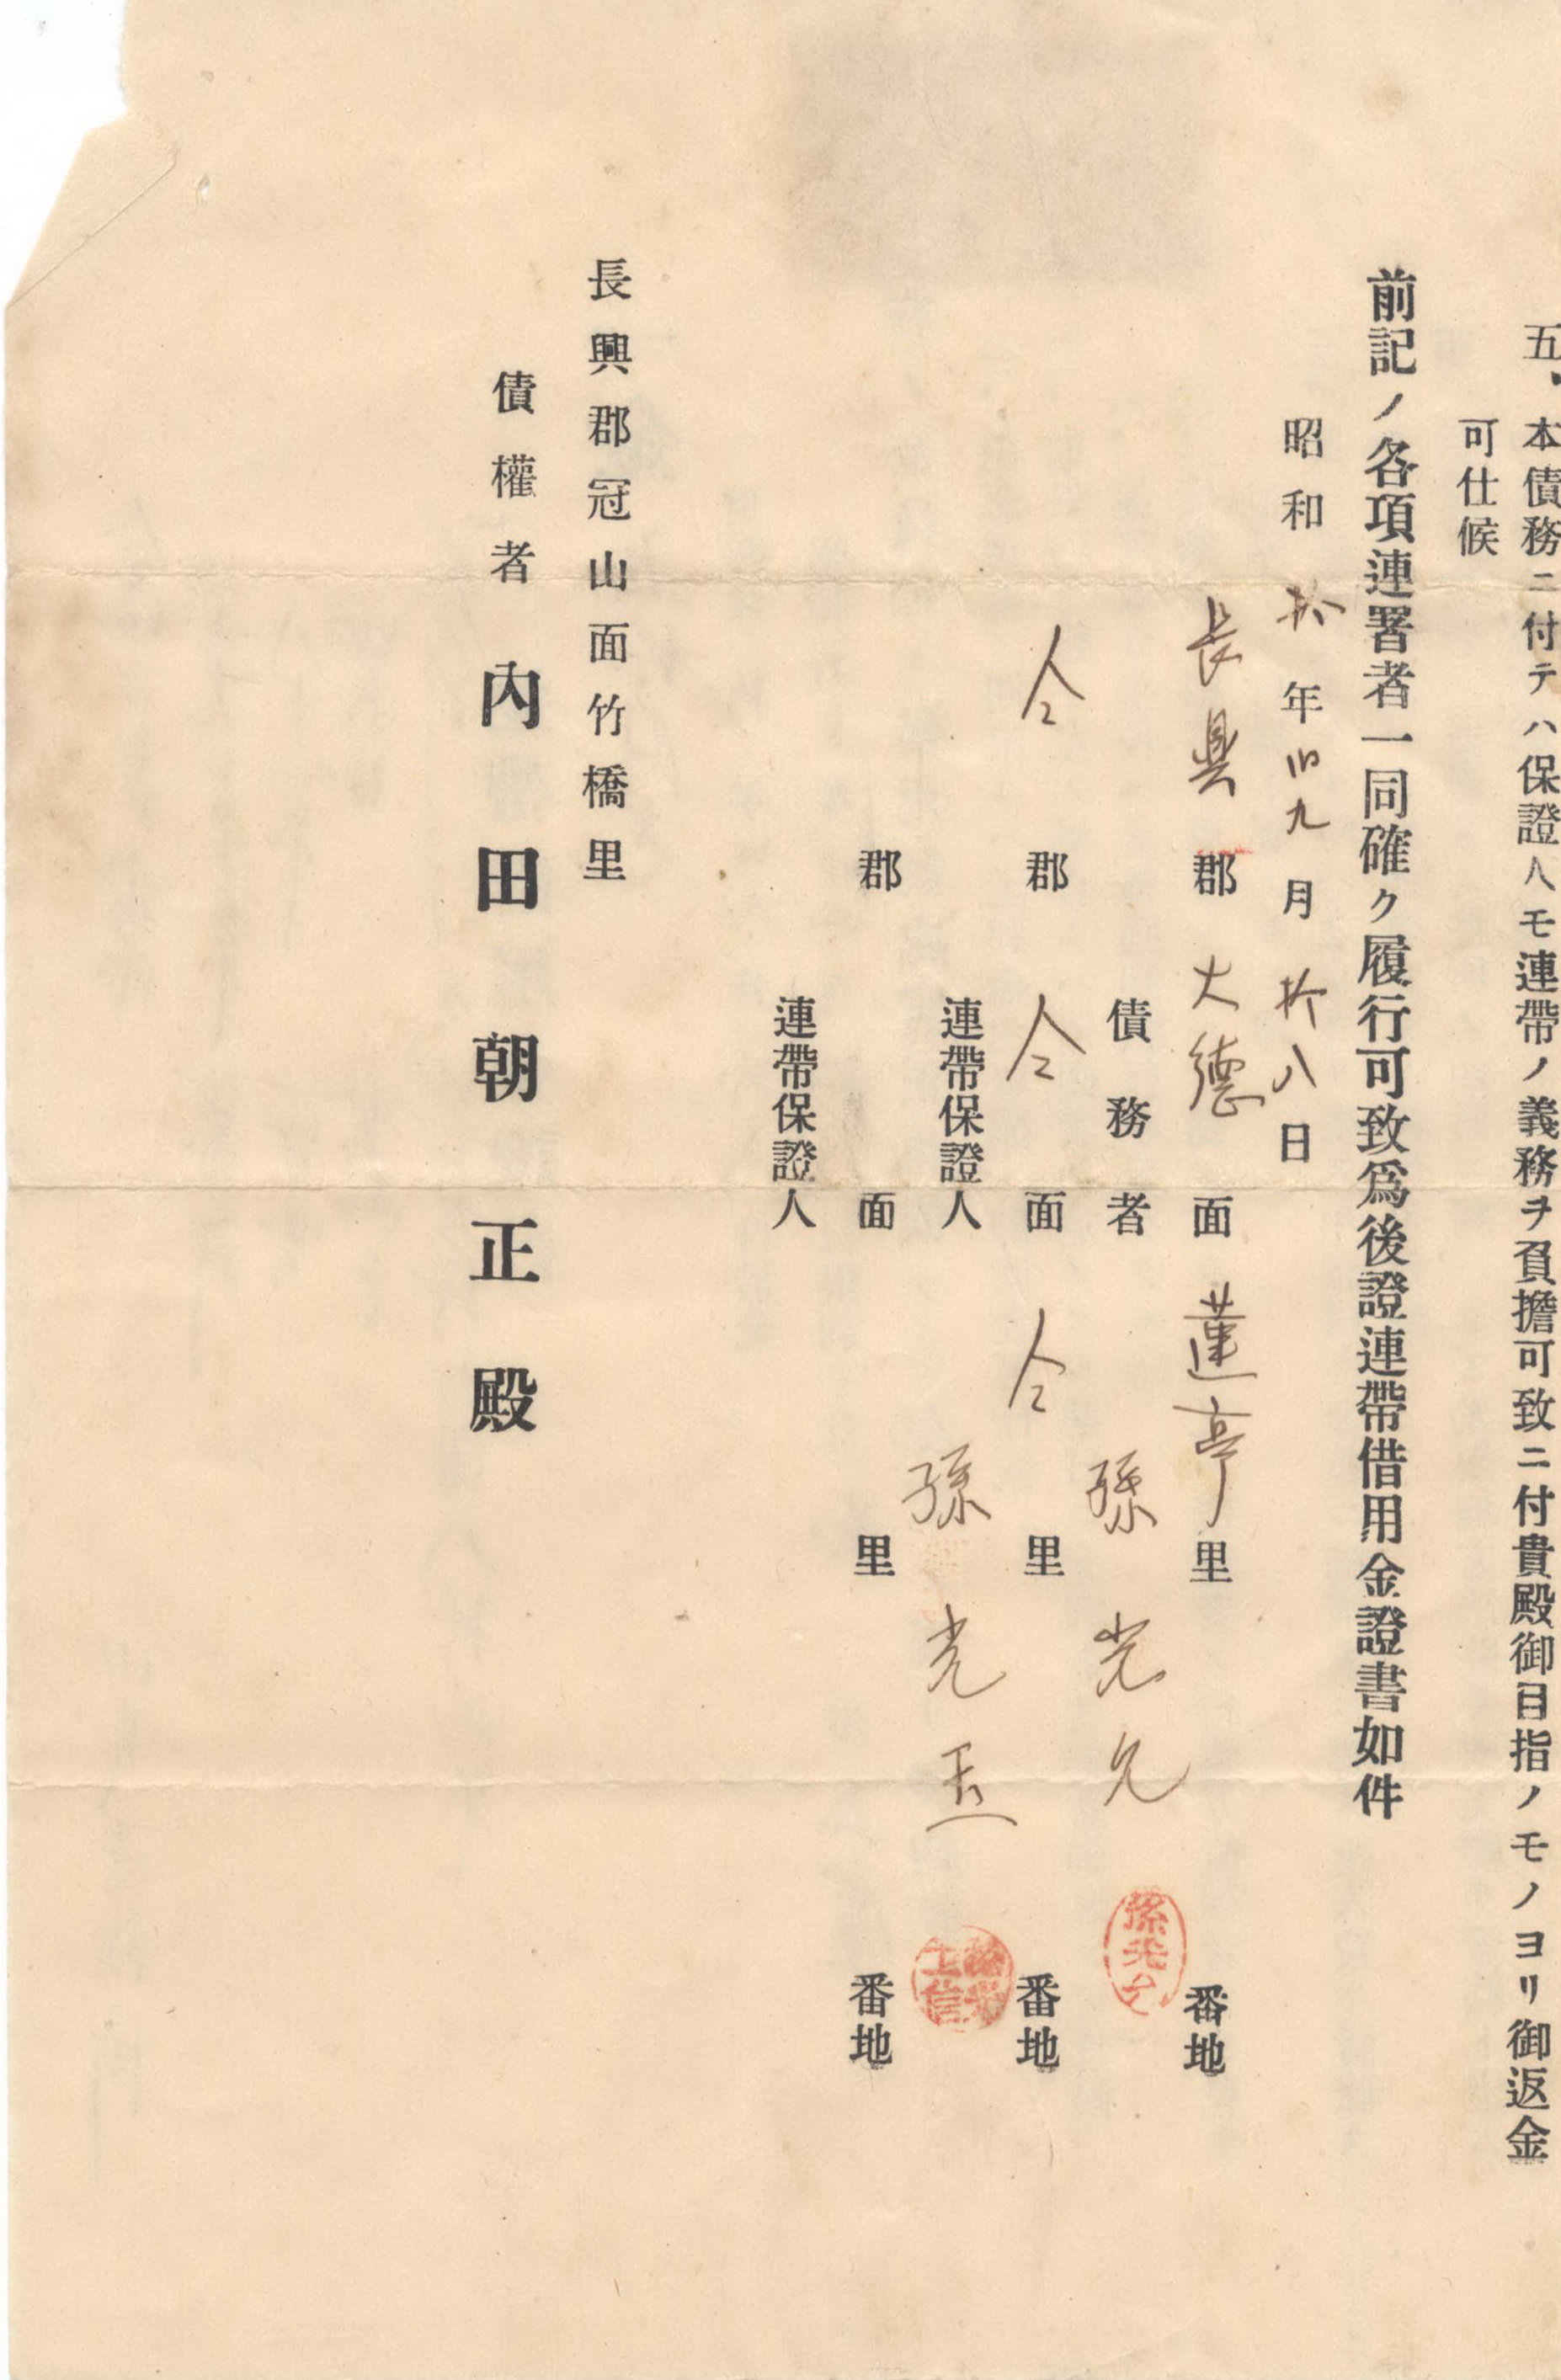 五、本債務ニ付テハ保證人モ連帶ノ義務ヲ負擔可致ニ付貴殿御目指ノモノヨリ御返金
可仕候
前記ノ各項連署者一同確ク履行可致爲後證連帶借用金證書如件
昭和拾年旧九月拾八日
長興郡大德面蓮亭里番地
債務者孫光允
孫光允
仝郡仝面仝里番地
連帶保證人孫光玉
郡面里番地
連帶保證人
長興郡冠山面竹橋里
債權者內田朝正殿